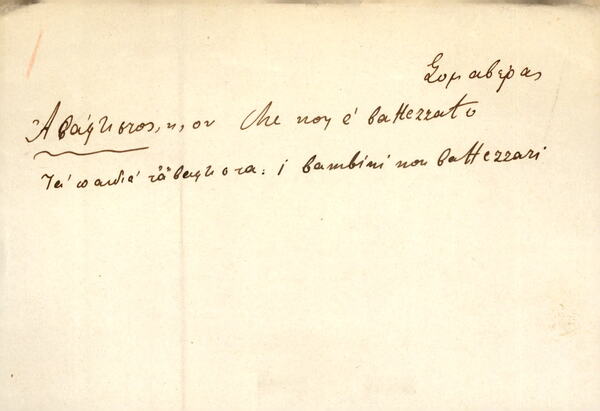 Σομαβέρας
Ἀβάφτιστος, η, ον Che non é battezzato
Τά παιδιά τἀβάφτιστα: i bambini non battezzati